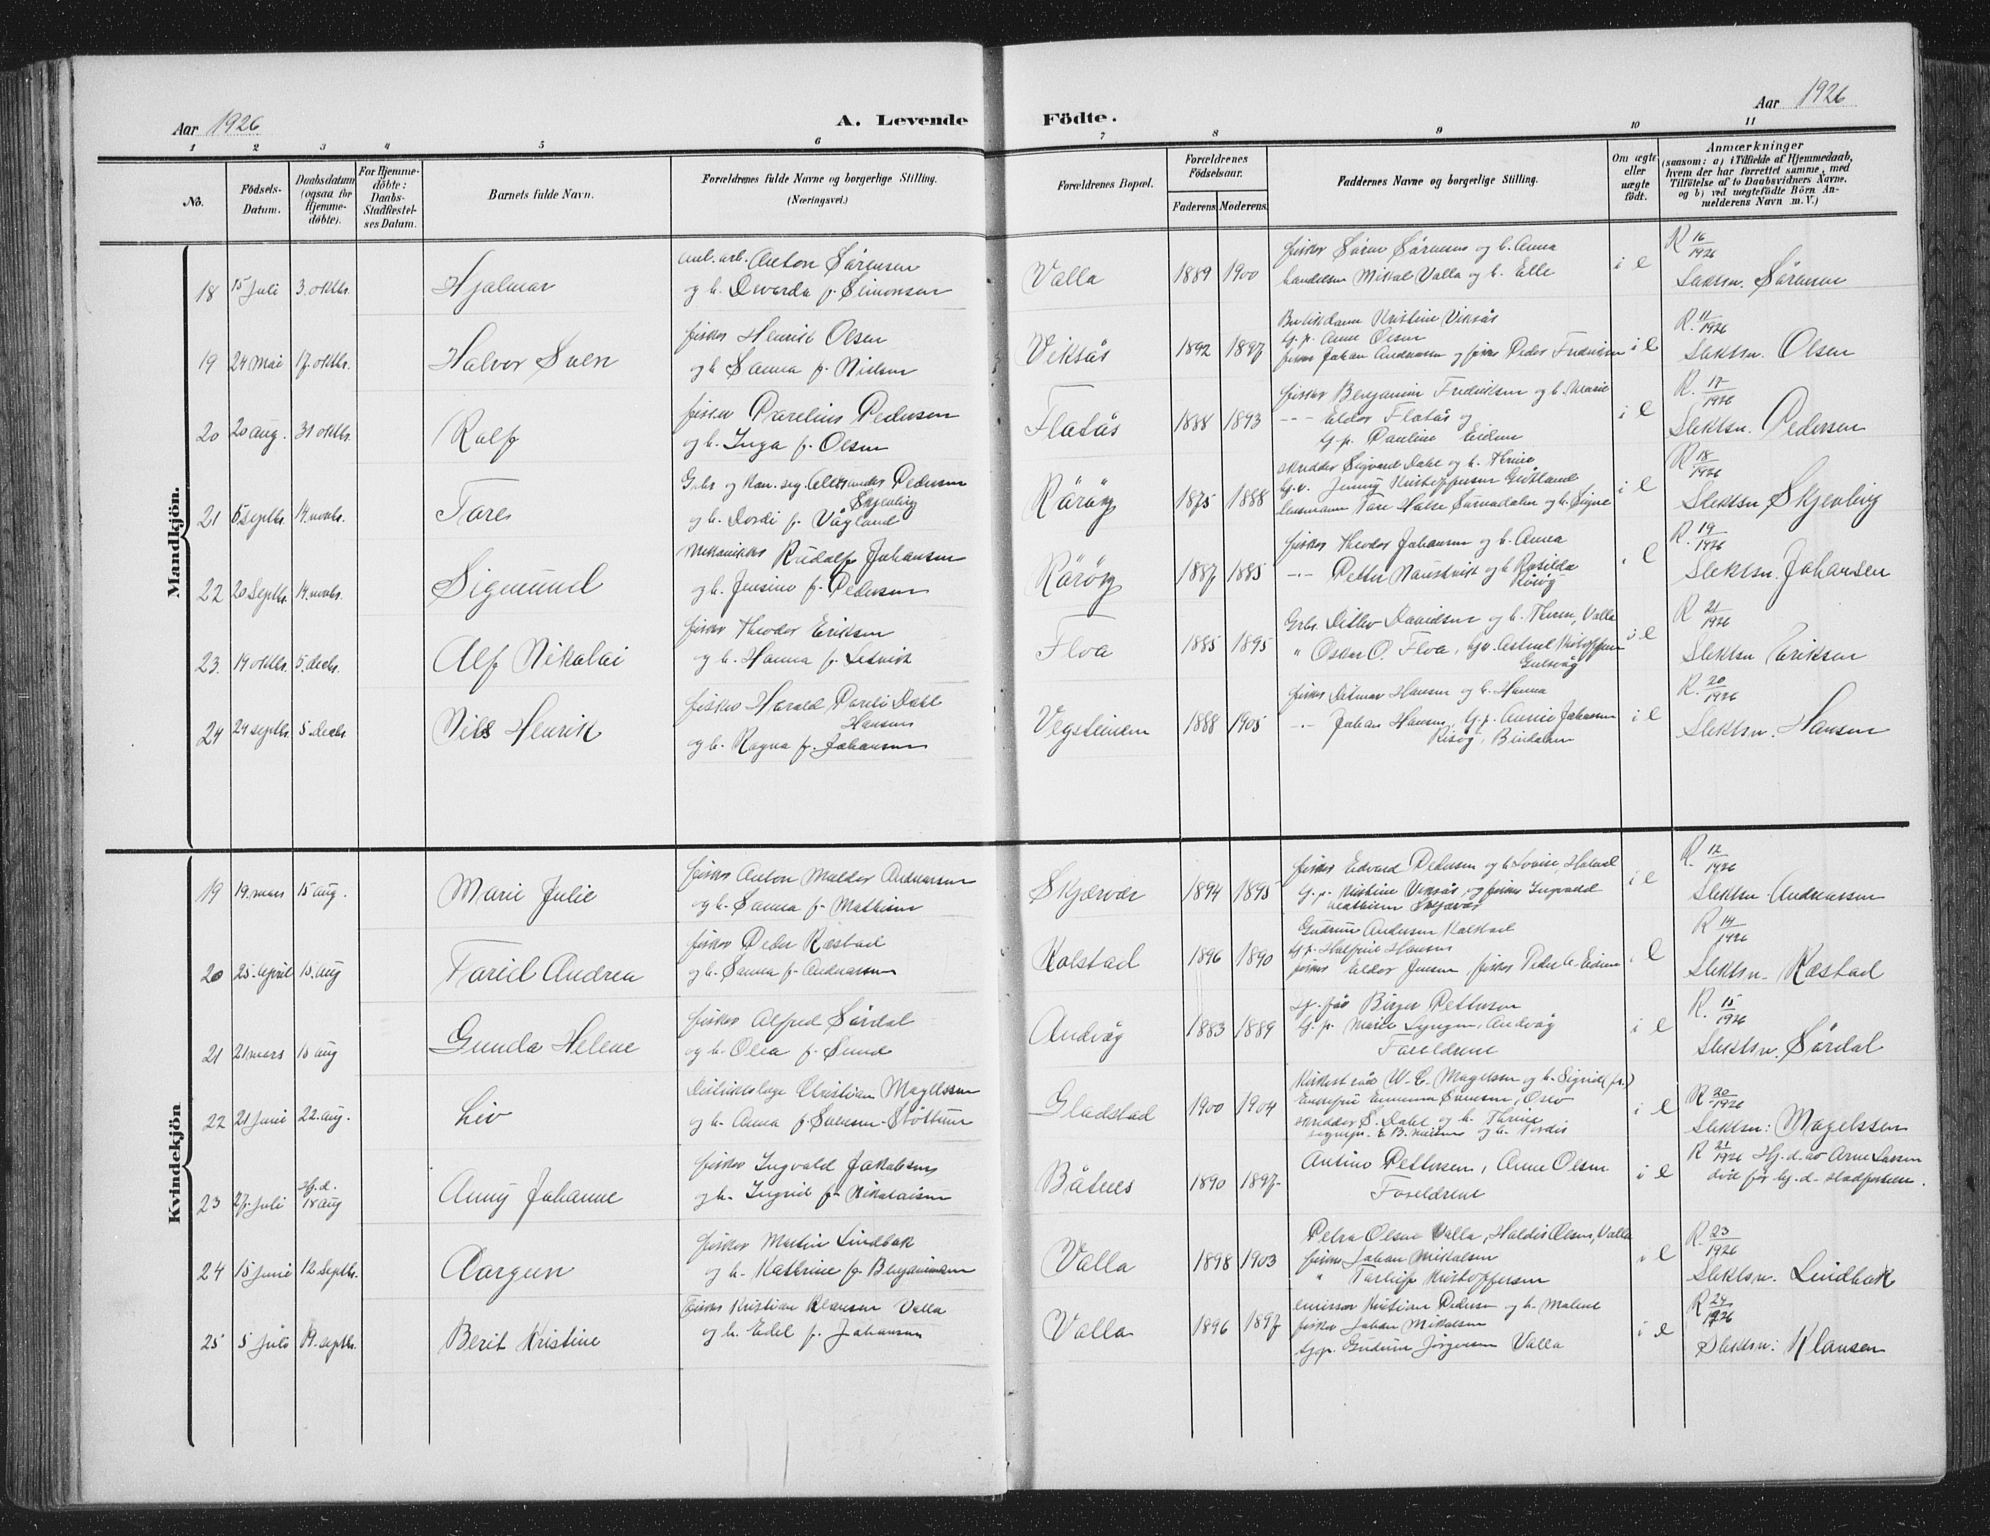 Aar 1926
A. Levende Födte.
Aar 1926
1 2 3 4 5 6 7 8 9 10 11
No.
Födsels-Datum.
Daabsdatum (ogsaa for Hjemmedöbte).
For Hjemmedöbte: Daabs-Stadfæstelses Datum.
Barnets fulde Navn.
Forældrenes fulde Navne og borgerlige Stilling.
(Næringsvei.)
Forældrenes Bopæl.
Forældrenes Födselsaar.
Faderens. Moderens.
Faddernes Navne og borgerlige Stilling.
Om ægte eller uægte födt.
Anmærkninger
(saasom: a) i Tilfælde af Hjemmedaab, hvem der har forrettet samme, med Tilföielse af to Daabsvidners Navne. og b) ved uægtefödte Börn Anmelderens Navn m. V.)
Mandkjön.
18 15 juli 3. oktbr. Hjalmar
Anton Sørensen
og h. Devarda f. Simonsen
Valla 1889 1900
fisker Søren Sørensen og h. Anna
Mikal Valla og h. Elle
i e
R 16/1926
Slektsn. Sørensen
19 24 mai 17. oktbr. Halvor Sven
fisker Henrik Olsen
og h. Sanna f. Nielsen
Viksås 1892 1897
Kristine Viksås
Gp. Anne Olsen
fisker Johan Andreassen og fisker Peder Fredriksen
i e
R. 11/1926
Slektsn. Olsen
20 20 aug. 31 oktbr. Rolf
fisker Parelius Pedersen
og h. Inga f. Olsen
Flatås 1888 1893
fisker Benjamin Fredriksen og h. Marie
-"- Eldor Flatås og
Gp. Pauline Eidem
i e
R. 17/1926
Slektsn. Pedersen
21 5 septbr. 14. novbr. Tore
Gbr og Pedersen
Skjevling
og h. Dordi f. Vågland
Rårøy 1875 1888
skredder Sigvard Dahl og h. Thrine
Jenny Kristoffersen
lensmann Tore Halse Surnadalen og h. Signe
i e
R. 18/1926
Slektsn Skjevling
22 20 septbr. 14. novbr. Sigmund
Mekaniker Rudolf Johansen
og h. Jensine f. Pedersen
Rårøy 1887 1885
fisker Theodor Johansen og h. Anna
-"- Petter Naustvik og h. Rasilda
i e
R. 19/1926
Slektsn. Johansen
23. 14 oktbr. 5. decbr. Alf Nikolai
fisker Theodor Eriksen
og h. Hanna f. Setvik
Floa 1885 1895
Gbr. Ditlev Davidsen og h. Valla
" Oskar O. Floa,
i e
R. 21/1926
Slektsn Eriksen
24 24 septbr. 5 decbr Nils Henrik
fisker Harald Dahl
Hansen
og h. Ragna f. Johansen
Vegsteinen 1888 1905
fisker Ditmar Hansen og h. Hanna
-"- Johan Hansen, Gp. Annie Johansen
Bindalen
i e
R. 20/1926
Slektsn. Hansen
Kvindekjön
19 19. mars 15 aug. Marie Julie
fisker Anton Maldor Andreassen
og h. Sanna f. Mathisen
Skjærvær 1894 1895
fisker Edvard Pedersen og h. Lovise,
Gp. Kristine Viksås, og fisker Ingvald
Mathisen Skjærvær
i e
R. 12/1926
Slektsn. Andreassen
20 25. april 15. aug Torid Andrea
fisker Peder Kæstad
og h. Sanna f. Andreassen
Kolstad 1896 1890
Gudrun Andersen Kolstad
Gp. Hansen
fisker Eldor Jensen, fisker Peder Eidem
i e
R 14/1926
Slektsn. Kæstad
21 21 mars 15 aug Gunda Helene
fisker Alfred Sørdal
og h. Olea f. Sund
Andvåg 1883 1889
Birger Pettersen
Gp. Marie Lyngen, Andvåg
Foreldrene
i e
R. 15/1926
Slektsn. Sørdal
22 21 juni 22. aug. Liv
Distriktslæge Christian Magelssen
og h. Anna f. Svensen-Støttum
Gladstad 1900 1904
W. C. Magelssen og h. Sigrid (fr.)
Oslo
skredder S. Dahl og h. Thrine
i e
R. 20/1926
Slektsn: Magelssen
23 27. juli Hj.d. 18 aug Anny Johanne
fisker Ingvald Jakobsen
og h. Ingrid f. Nikolaisen
Båtnes 1890 1897
Antino Pettersen, Anne Olsen
Foreldrene
i e
R 21/1926 Hj. d. av Arne Lassen
død før hj. d. stadfestelsen.
24 15 juni 12. septbr. Aargun
fisker Martin Lindbak
og h. Kathrine f. Benjaminsen
Valla 1898 1903
Petra Olsen Valla, Haldis Olsen, Valla
fisker Johan Mikalsen
" Torleif Kristoffersen
i e
R. 23/1926
Slektsn. Lindbak
25 5 juli 19. septbr. Berit Kristine
Fisker Kristian Klausen Valla
og h. Edel f. Johansen
Valla 1896 1897
emissær Kristian Pedersen og h. Malene
fisker Johan Mikalsen
Gp. Gudrun Jørgensen Valla
i e
R 24/1926
Slektsn: Klausen